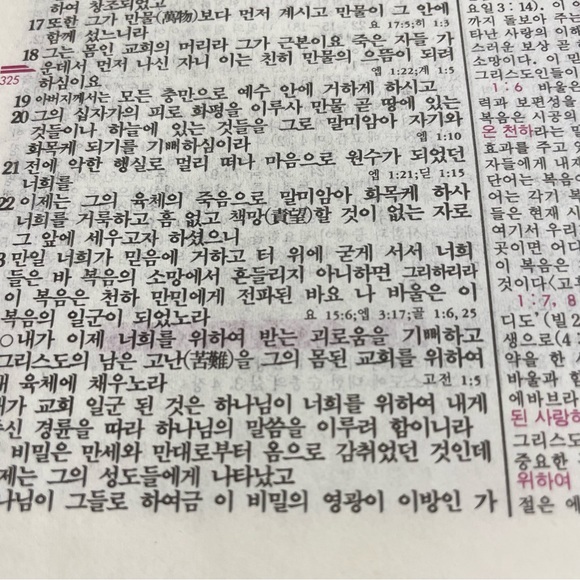 하여 창조되었고
17 또한 그가 만물(萬物)보다 먼저 계시고 만물이 그 안에
함께 섰느니라
요 17:5;히 1:3
18 그는 몸인 교회의 머리라 그가 근본이요 죽은 자들 가
325
운데서 먼저 나신 자니 이는 친히 만물의 으뜸이 되려
하심이요
엡 1:22;계 1:5
19 아버지께서는 모든 충만으로 예수 안에 거하게 하시고
20 그의 십자가의 피로 화평을 이루사 만물 곧 땅에 있는
것들이나 하늘에 있는 것들을 그로 말미암아 자기와
화목케 되기를 기뻐하심이라
엡 1:10
21 전에 악한 행실로 멀리 떠나 마음으로 원수가 되었던
너희를
엡 1:21;딛 1:15
22 이제는 그의 육체의 죽음으로 말미암아 화목케 하사
너희를 거룩하고 흠 없고 책망(責望)할 것이 없는 자로
그 앞에 세우고자 하셨으니
3 만일 너희가 믿음에 거하고 터 위에 굳게 서서 너희
들은 바 복음의 소망에서 흔들리지 아니하면 그리하리라
이 복음은 천하 만민에게 전파된 바요 나 바울은 이
복음의 일군이 되었노라
요 15:6;엡 3:17;골 1:6, 25
○내가 이제 너희를 위하여 받는 괴로움을 기뻐하고
그리스도의 남은 고난(苦難)을 그의 몸된 교회를 위하여
내 육체에 채우노라
고전 1:5
내가 교회 일군 된 것은 하나님이 너희를 위하여 내게
주신 경륜을 따라 하나님의 말씀을 이루려 함이니라
비밀은 만세와 만대로부터 옴으로 감취었던 것인데
이제는 그의 성도들에게 나타났고
하나님이 그들로 하여금 이 비밀의 영광이 이방인 가
요일 3:14). 이
까지 돌보아 주는
타난 사랑의 이해
스러운 보상 곧
소망이다. 이 믿
그리스도인들이
1:6 바울은
력과 보편성을
복음은 시공의
온 천하라는 말
효과를 주고 있
자들에게 내지
단어는 복음이
어는 각기 복
들은 현재 시
여기서 우리
곳이면 어디
이 복음은
것이다(고후
1:7, 8
디도'(빌 2
생으로(4:
약을 한
바울과 함
에바브라
된 사랑하
그리스도
중요한
위하여
절은 에